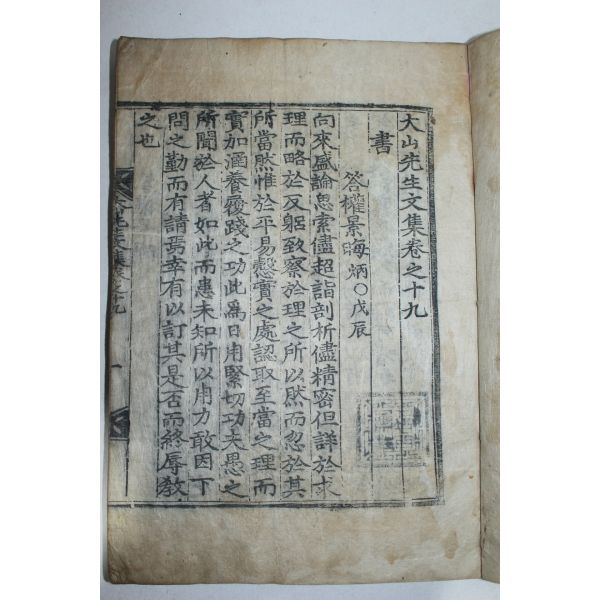 大山先生文集卷之十九
書
答權景晦炳〇戊辰
向來盛論思索儘超詣剖析儘精密但詳於求
理而略於反躬致察於理之所以然而忽於其
所當然惟於平易慤實之處認取至當之理而
實加涵養履踐之功此爲日用緊切功夫愚之
所聞於人者如此而患未知所以用力敢因下
問之勤而有請焉幸有以訂其是否而終辱教
之也